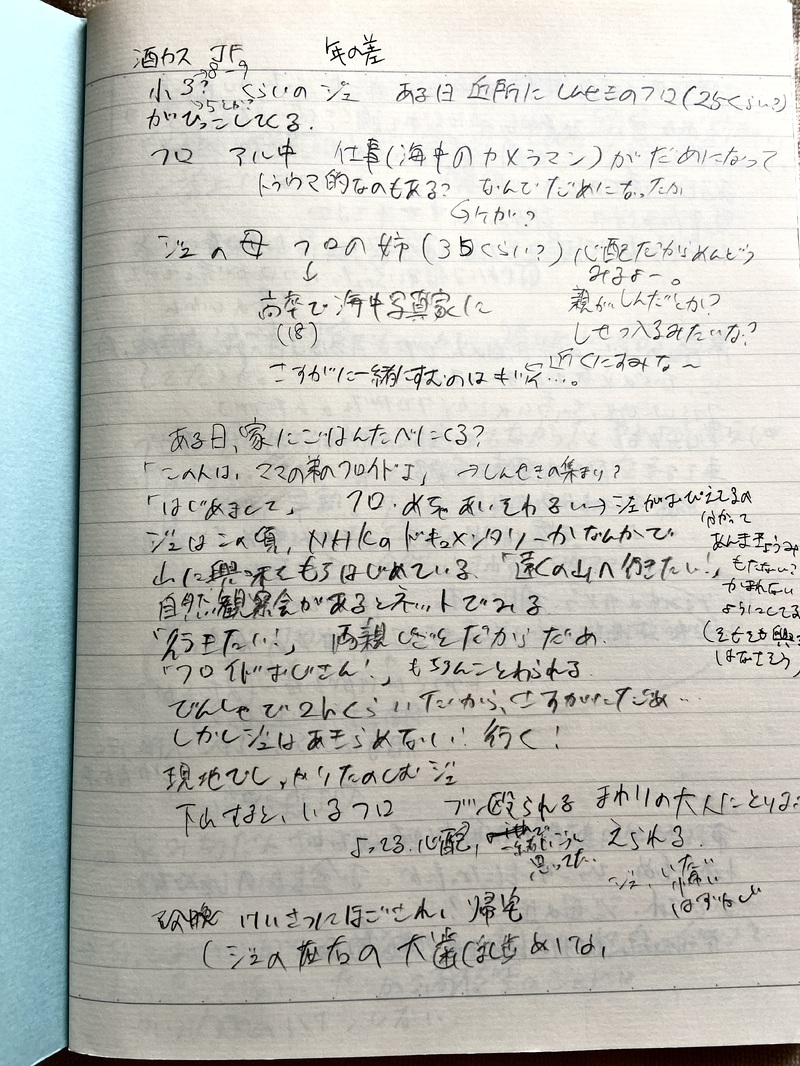 酒カス JF 年の差
→8〜9
小3? くらいのジェ ある日 近所に しんせきのフロ(25くらい?)
→5とか?
がひっこしてくる.
フロ アル中 仕事(海中のカメラマン)がだめになって
トラウマ的なのもある? なんでだめになったか
ケガ?
ジェの母 フロの姉(35くらい?) 心配だからめんどう
みるよー。
↓
高卒で海中写真家に
(18)
親がしんだとか?
しせつ入るみたいな?
近くにすみな〜
さすがに一緒にすむのは
ある日、家にごはんたべにくる?
「この人は、ママの弟のフロイドよ」 →しんせきの集まり?
「はじめまして」 フロ.めちゃあいそわるい→ジェがおびえてるの
分かって
ジェはこの頃, NHKのドキュメンタリーかなんかで
あんまきょうみ
もたない?
山に興味をもちはじめている.「遠くの山へ行きたい!」
かまれない
ようにしてる
自然観察会があるとネットでみる.
(そもそも興
はなさそう)
「行きたい!」 両親しごとだからだめ.
「フロイドおじさん!」 もちろんことわられる.
でんしゃで2hくらいだから、さすがにだめ…
しかしジェはあきらめない! 行く!
現地でしっかりたのしむジェ
下山すると、いるフロ ブン殴られる まわりの大人にとりお
よってる.心配, 一緒にいこうと
思ってた.
えられる.
ジェ、いたい
はずなし
けいさつにほごされ、帰宅
(ジェの左右の犬歯(乳歯